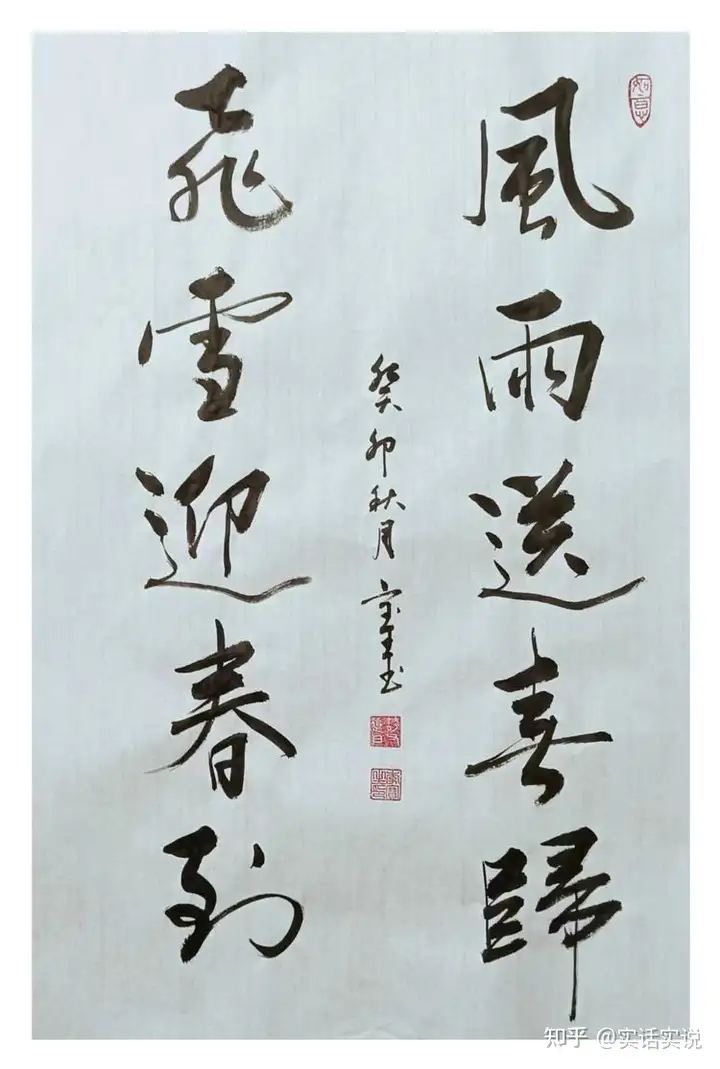 風雨送喜歸
飛雪迎春到
癸卯秋月
知乎 @实话实说